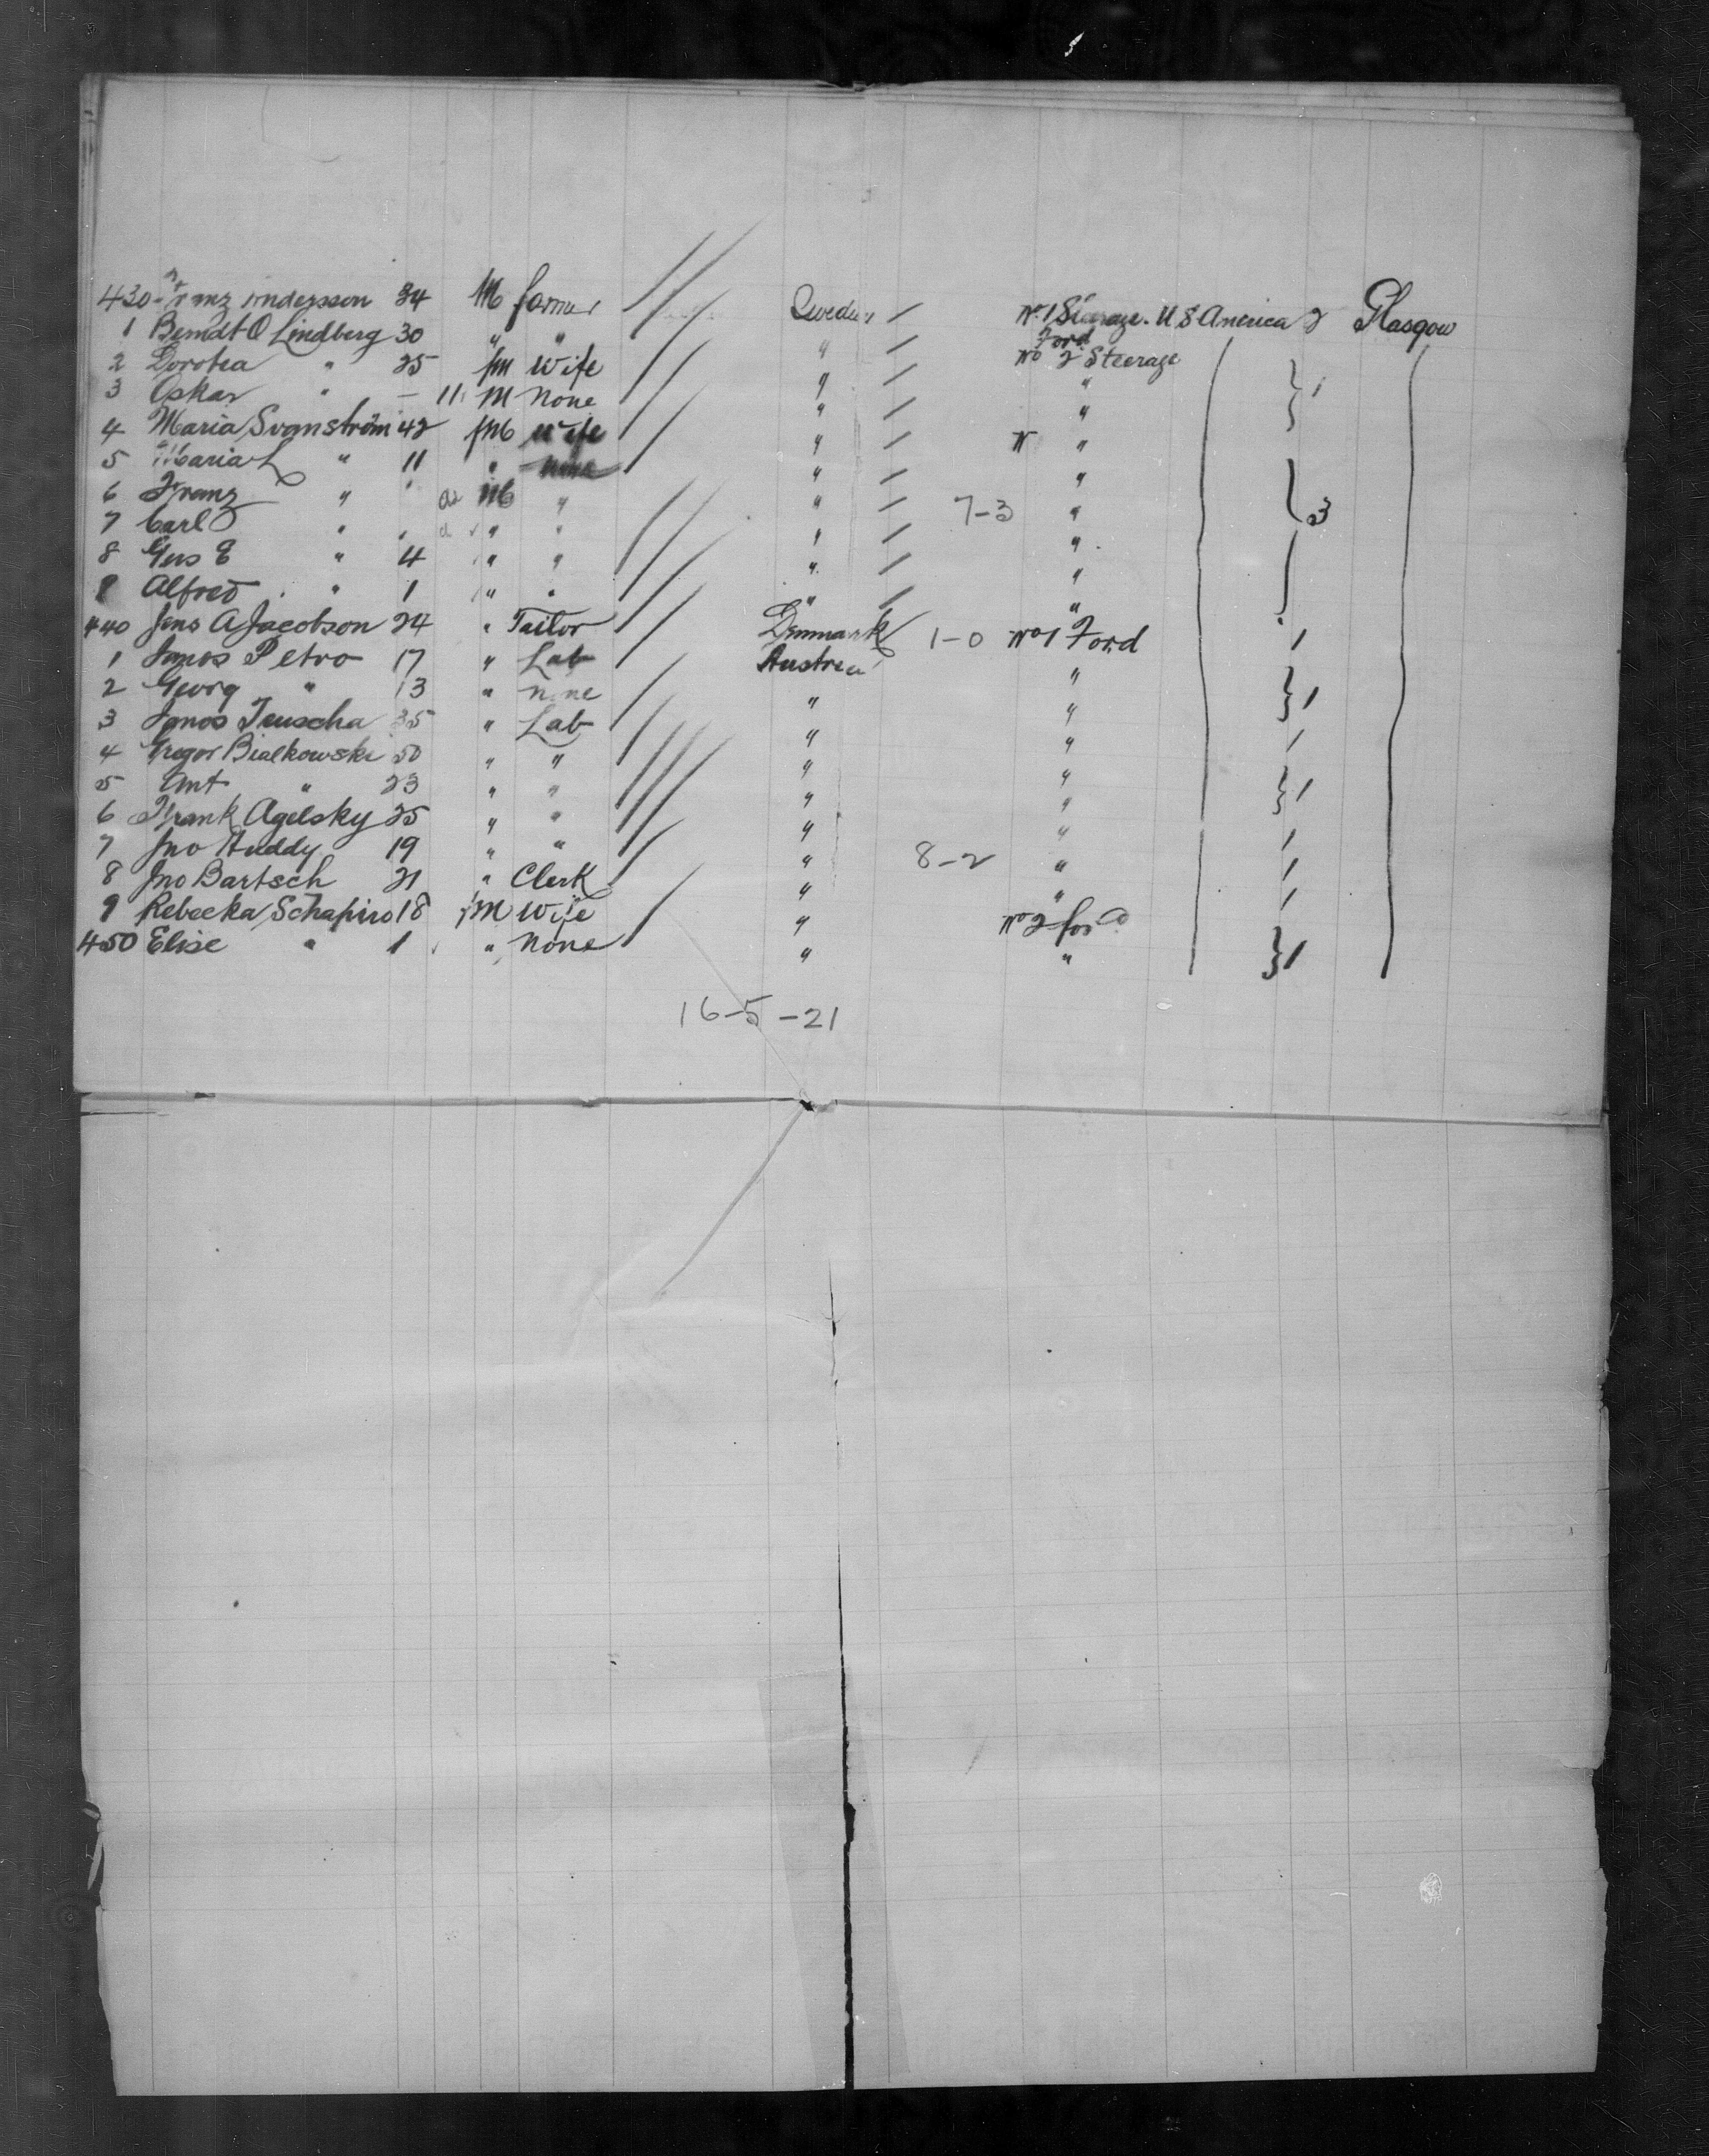 430 Franz Andersson 34 M farmer Sweden No 1 Steerage. U S America 2 Glasgow
1 Berndt O Lindberg 30 " " " Ford
2 Dorotea " 25 fM Wife " No 2 Steerage
3 Oskar " – 11 M None " " } 1
4 Maria Svanström 42 fM Wife " "
5 Maria L " 11 " None " "
6 Franz " " M " " "
7 Carl " " " " 7-3 " } 3
8 Gus E " 4 " " " "
9 Alfred " 1 " " " "
440 Jens A Jacobson 24 " Tailor Denmark 1-0 No 1 Ford 1
1 Janos Petro 17 " Lab Austria "
2 Georg " 13 " none " " } 1
3 Janos Teuscha 35 " Lab " " 1
4 Gregor Bialkowski 50 " " " "
5 Ant " 23 " " " " } 1
6 Frank Agelsky 25 " " " " 1
7 Jno Huddy 19 " " " 8-2 " 1
8 Jno Bartsch 21 " Clerk " " 1
9 Rebecka Schapiro 18 fM Wife " No 2 for'd
450 Elise " 1 " None " " } 1
16-5-21